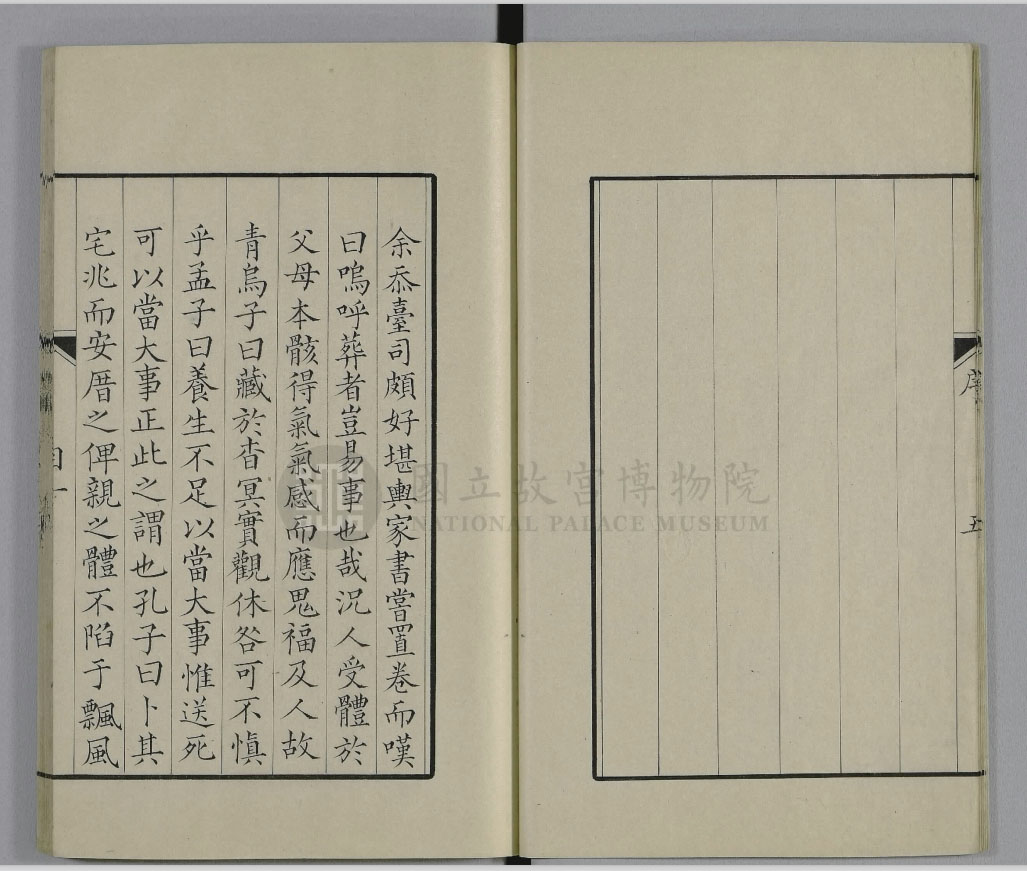 序
五
余忝臺司頗好堪輿家書嘗置卷而嘆
曰嗚呼葬者豈易事也哉況人受體於
父母本骸得氣氣感而應鬼福及人故
青烏子曰藏於杳冥實觀休咎可不愼
乎孟子曰養生不足以當大事惟送死
可以當大事正此之謂也孔子曰卜其
宅兆而安厝之俾親之體不陷于飄風
國立故宮博物院
NATIONAL PALACE MUSEUM